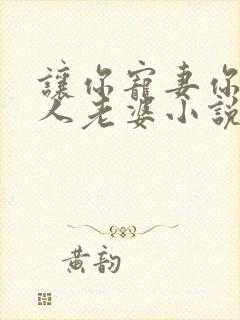 讓你寵妻你
人老婆小說
黃韵